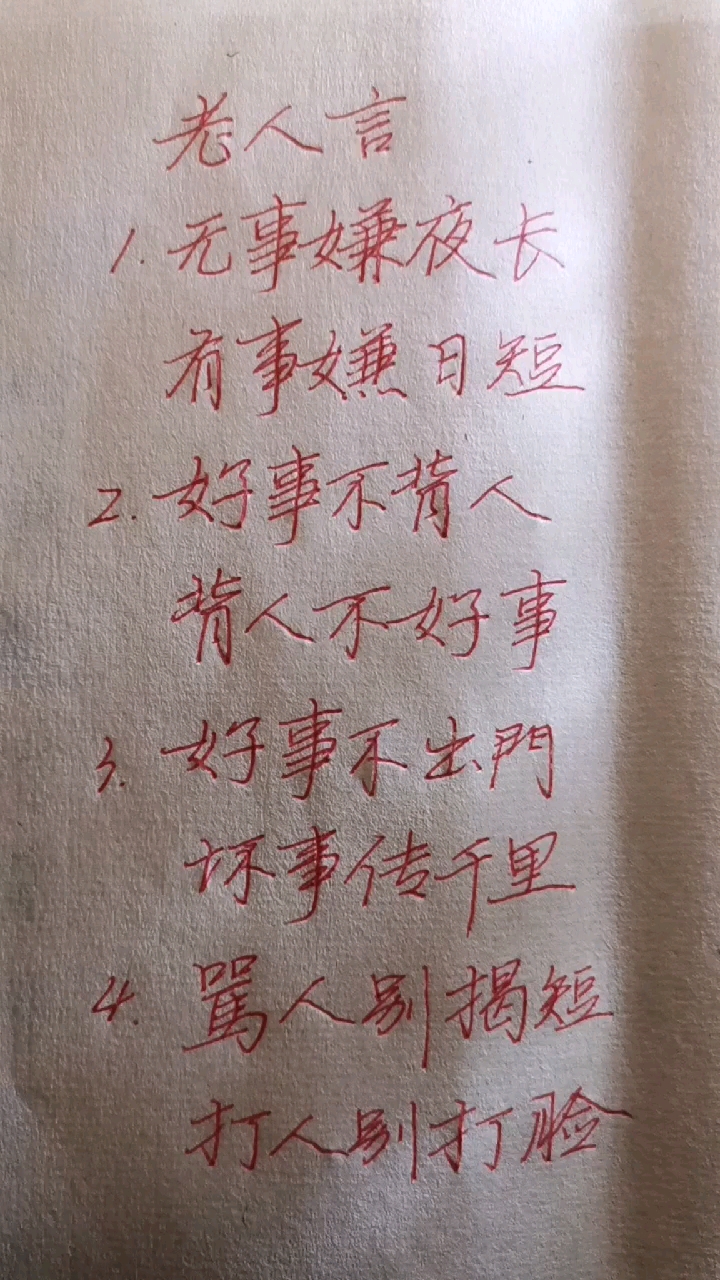 老人言
1. 无事嫌夜长
有事嫌日短
2. 好事不背人
背人不好事
3. 好事不出門
坏事传千里
4. 駡人别揭短
打人别打脸